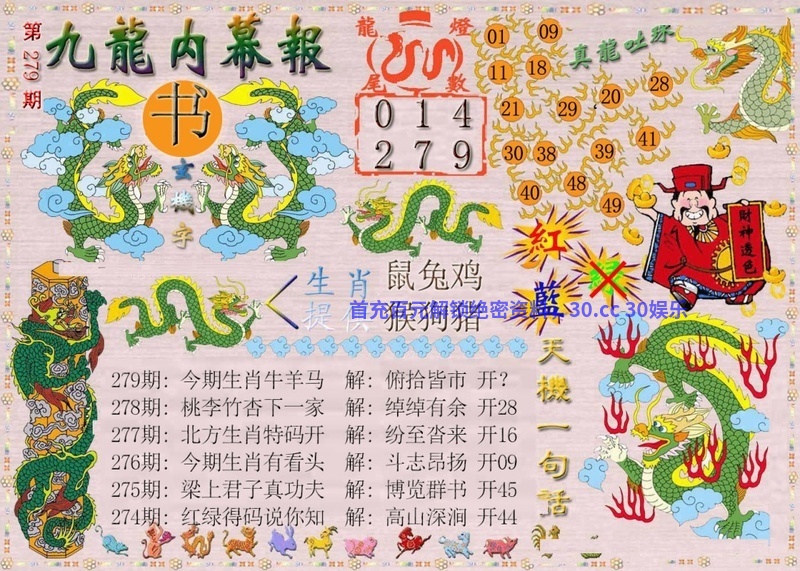 第279期
九龍内幕報
书
玄機字
龍燈
尾數
0 1 4
2 7 9
真龍吐珠
01 09
11 18
21 29 20 28
30 38 39 41
40 48 49
紅
藍
財神透色
生肖提供
鼠兔鸡
猴狗猪
首充百元解锁绝密资 30.cc 30娱乐
279期: 今期生肖牛羊马 解: 俯拾皆市 开?
278期: 桃李竹杏下一家 解: 绰绰有余 开28
277期: 北方生肖特码开 解: 纷至沓来 开16
276期: 今期生肖有看头 解: 斗志昂扬 开09
275期: 梁上君子真功夫 解: 博览群书 开45
274期: 红绿得码说你知 解: 高山深涧 开44
天機一句話